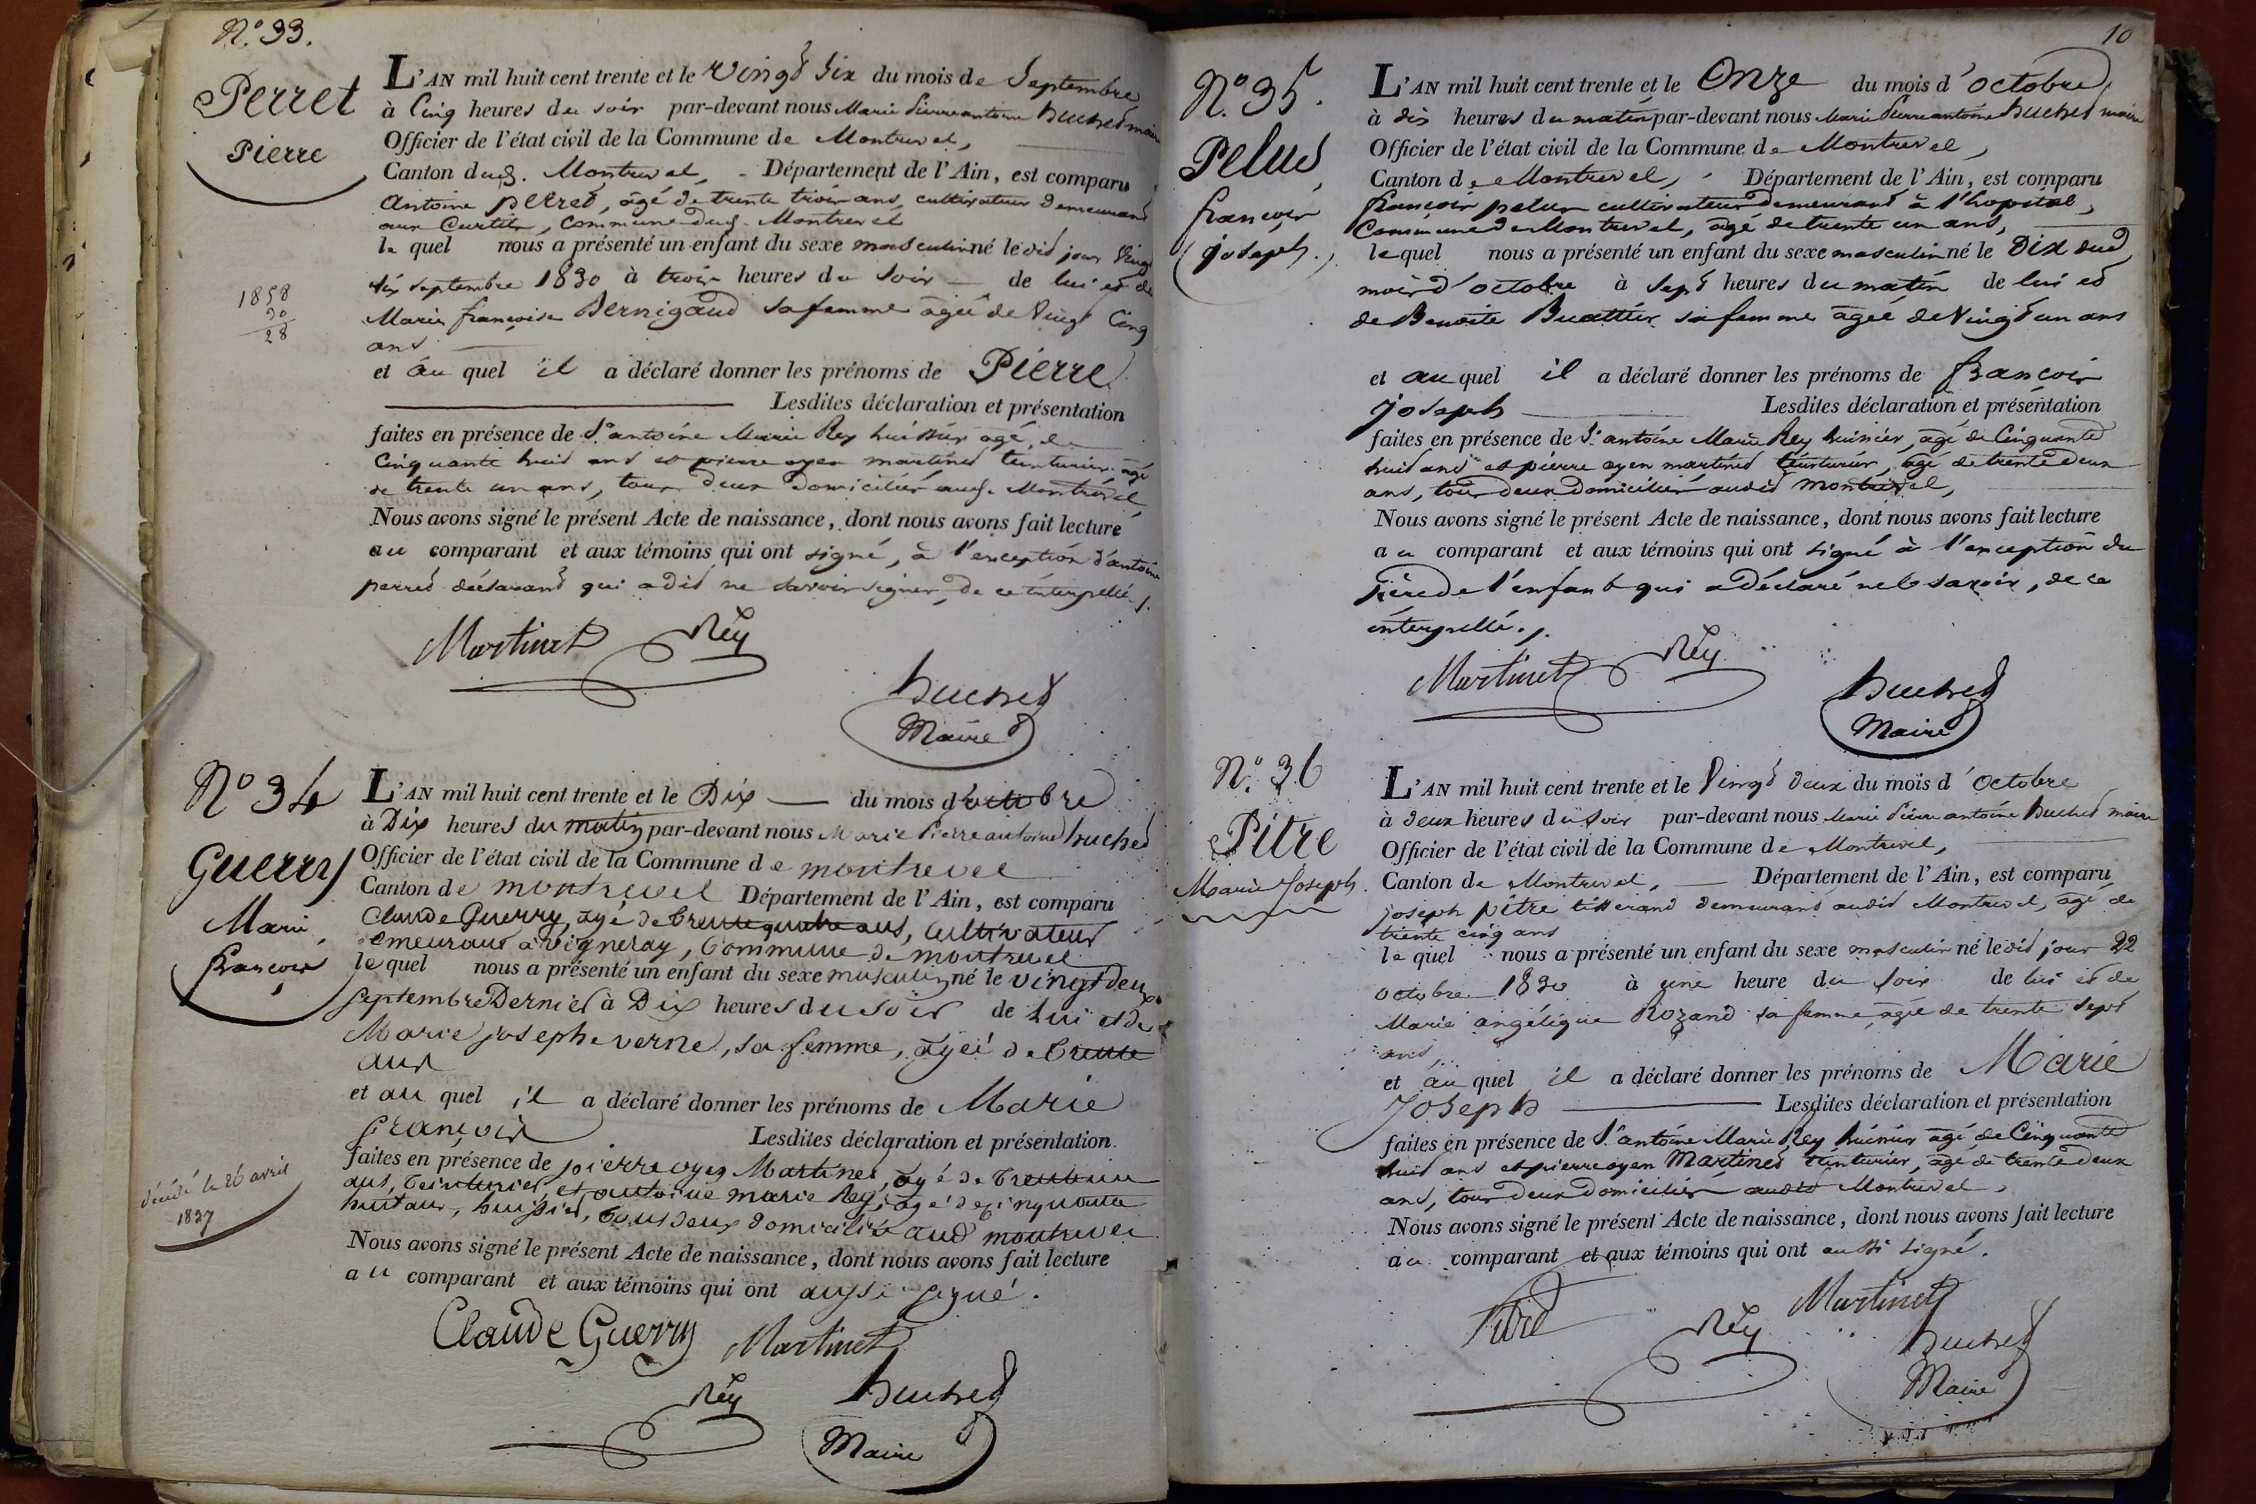 N.º 33.
Perret
Pierre
1858
30
28
L'AN mil huit cent trente et le vingt six du mois de Septembre
à Cinq heures du soir par-devant nous Marie Pierre antoine huchet maire
Officier de l'état civil de la Commune de Montrevel,
Canton dud. Montrevel, Département de l'Ain, est comparu
antoine perret, âgé de trente trois ans, cultivateur demeurant
aux Curtils, Commune dud. Montrevel
le quel nous a présenté un enfant du sexe masculin né le dit jour Vingt
six septembre 1830 à trois heures du soir de lui et de
Marie françoise Bernigaud sa femme agée de Vingt Cinq
ans
et au quel il a déclaré donner les prénoms de Pierre
Lesdites déclaration et présentation
faites en présence de Sr antoine Marie Rey huissier agé de
Cinquante huit ans et pierre oyen martinet teinturier, agé
de trente un ans, tous deux domiciliés aud. Montrevel
Nous avons signé le présent Acte de naissance, dont nous avons fait lecture
au comparant et aux témoins qui ont signé, à l'exception d'antoine
perret déclarant qui a dit ne savoir signer, de ce interpellé./.
Martinet Rey
huchet
Maire
Nº 34
Guerry
Marie
françois
décédé le 26 avril
1837
L'AN mil huit cent trente et le Dix du mois d'octobre
à Dix heures du matin par-devant nous Marie Pierre antoine huchet
Officier de l'état civil de la Commune de montrevel
Canton de montrevel Département de l'Ain, est comparu
Claude Guerry, agé de trente quatre ans, Cultivateur
demeurant à vigneray, Commune de montrevel
le quel nous a présenté un enfant du sexe masculin né le vingt deux
septembre Dernier à Dix heures du soir de lui et de
Marie josephe verne, sa femme, agéé de trente
ans
et au quel il a déclaré donner les prénoms de Marie
François Lesdites déclaration et présentation
faites en présence de pierre oyen Martinet, agé de trente un
ans, teinturier, et antoine marie Rey, agé de cinquante
huit ans, huissier, tous deux domiciliés aud montrevel
Nous avons signé le présent Acte de naissance, dont nous avons fait lecture
au comparant et aux témoins qui ont aussi signé.
Claude Guerry Martinet
Rey huchet
Maire
10
N.º 35.
Pelus
françois
joseph.
L'AN mil huit cent trente et le Onze du mois d'octobre
à dix heures du matin par-devant nous Marie Pierre antoine huchet maire
Officier de l'état civil de la Commune de Montrevel,
Canton de Montrevel, Département de l'Ain, est comparu
françois pelus cultivateur demeurant à l'hopital,
Commune de Montrevel, agé de trente un ans,
le quel nous a présenté un enfant du sexe masculin né le Dix dud
mois d'octobre à sept heures du matin de lui et
de Benoite Buattier sa femme agéé de Vingt un ans
et au quel il a déclaré donner les prénoms de françois
joseph Lesdites déclaration et présentation
faites en présence de Sr antoine Marie Rey huissier, agé de Cinquante
huit ans et pierre oyen martinet teinturier, agé de trente deux
ans, tous deux domiciliés audit Montrevel,
Nous avons signé le présent Acte de naissance, dont nous avons fait lecture
au comparant et aux témoins qui ont signé à l'exception du
père de l'enfant qui a déclaré ne le savoir, de ce
interpellé./.
Martinet Rey
huchet
Maire
N.º 36
Pitre
Marie Joseph
L'AN mil huit cent trente et le Vingt deux du mois d'octobre
à deux heures du soir par-devant nous Marie Pierre antoine huchet maire
Officier de l'état civil de la Commune de Montrevel,
Canton de Montrevel, Département de l'Ain, est comparu
joseph pitre tisserand demeurant audit Montrevel, agé de
trente cinq ans
le quel nous a présenté un enfant du sexe masculin né le dit jour 22
octobre 1830 à une heure du soir de lui et de
Marie angélique Rozand sa femme agée de trente sept
ans,
et au quel il a déclaré donner les prénoms de Marie
Joseph Lesdites déclaration et présentation
faites en présence de Sr antoine Marie Rey huissier agé de Cinquante
huit ans et pierre oyen Martinet teinturier, agé de trente deux
ans, tous deux domiciliés audit Montrevel,
Nous avons signé le présent Acte de naissance, dont nous avons fait lecture
au comparant et aux témoins qui ont aussi signé.
Pitre Rey Martinet
huchet
Maire